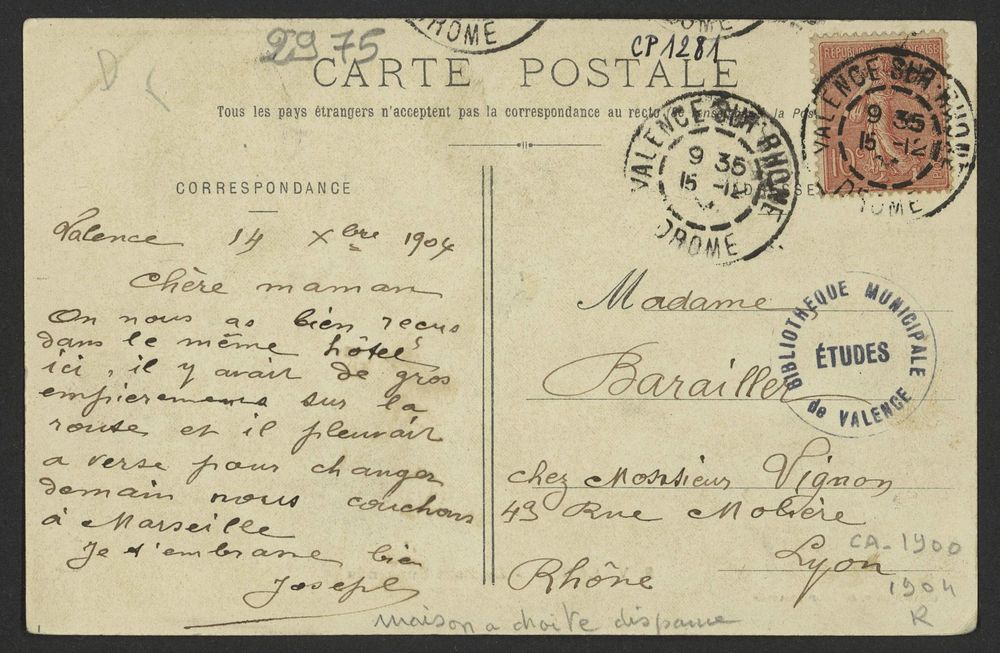 DROME
DROME
2975
CP 1281
CARTE POSTALE
Tous les pays étrangers n'acceptent pas la correspondance au recto
la Pos
REPUBLIQUE FRANÇAISE
VALENCE SUR RHONE
9 35
15 -12
DROME
VALENCE SUR RHONE
9 35
15 -12
DROME
CORRESPONDANCE
Valence 14 Xbre 1904
Chère maman
On nous as bien reçus
dans le même hôtel
ici, il y avait de gros
empierrements sur la
route et il pleuvait
a verse pour changer
demain nous couchons
à Marseille
Je t'embrasse bien
Joseph
Madame
Barailler
chez Monsieur Vignon
49 Rue Molière
Lyon
Rhône
BIBLIOTHEQUE MUNICIPALE
ÉTUDES
de VALENCE
CA-1900
1904
R
maison a droite disparue